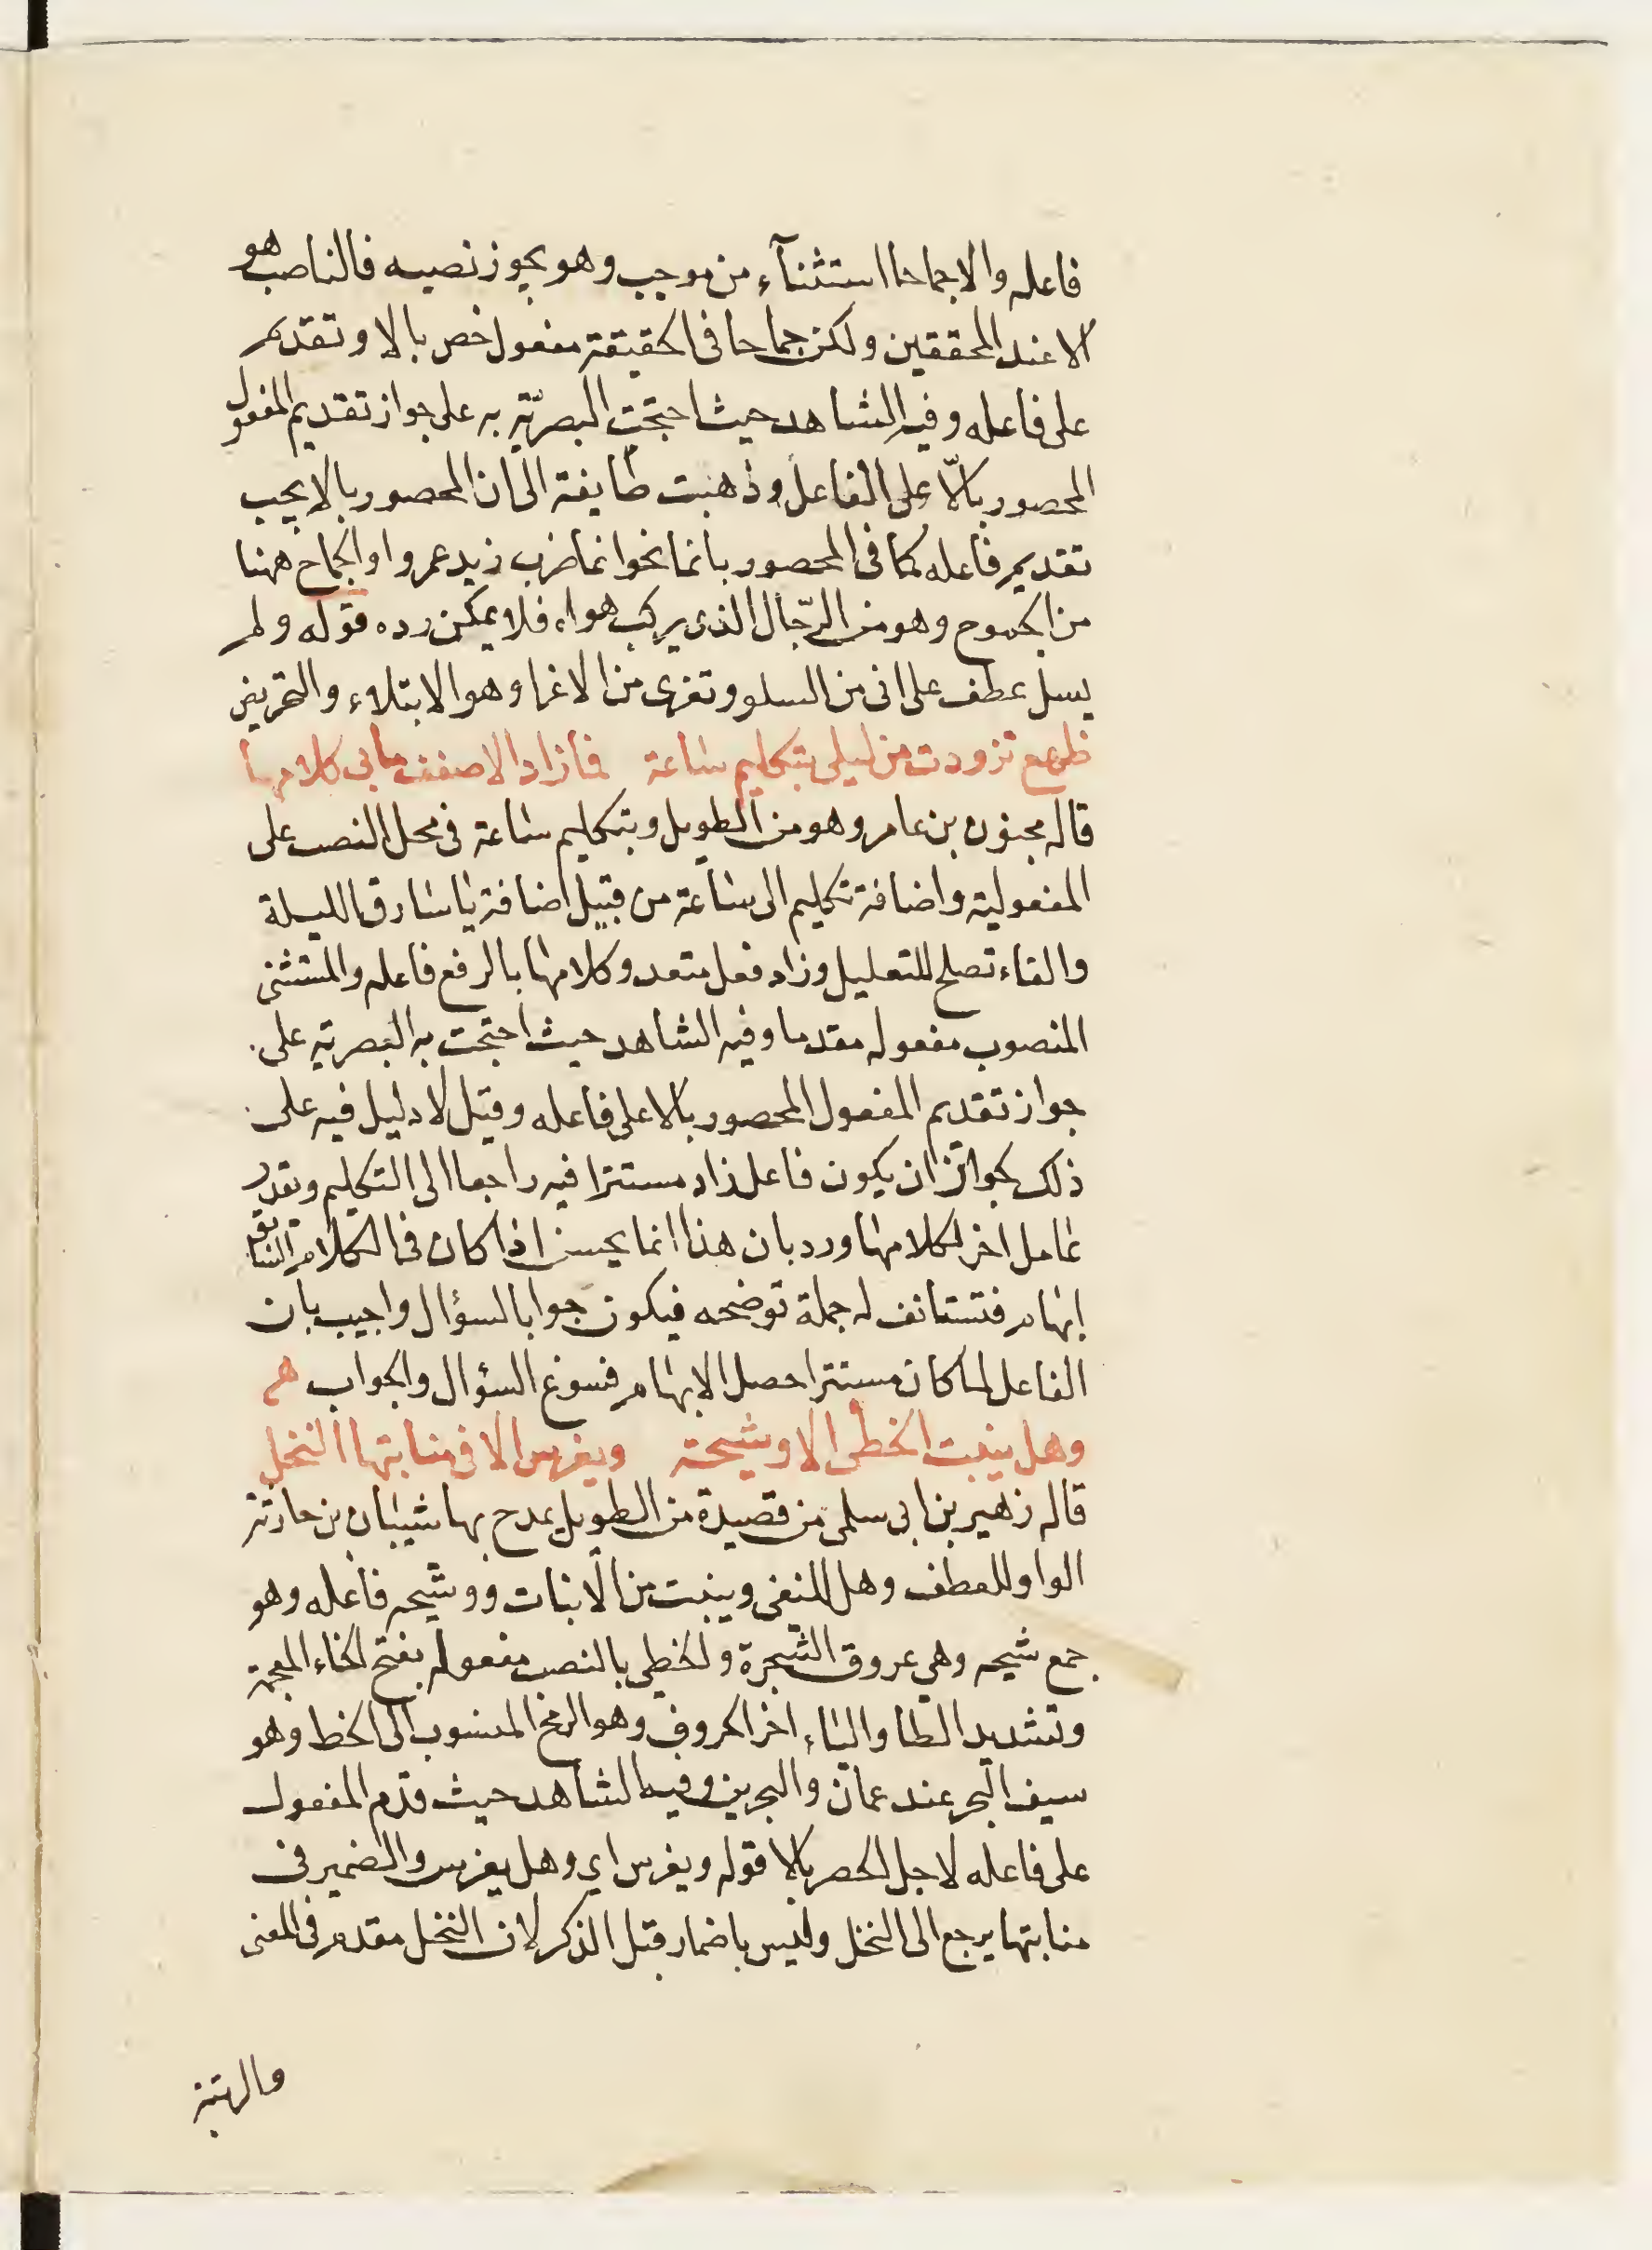 فاعله والاجماحا استثنآء من موجب وهو يجوز نصبه فالناصب هو
الا عند المحققين ولكن جماحا في الحقيقة مفعول خص بالا وتقديم
على فاعله وفيه الشاهد حيث احتجت البصريّة به على جواز تقديم المفعول
المحصور بالّا على الفاعل وذهبت طايفة الى ان المحصور بالا يجب
تقديم فاعله كما في المحصور بانما نحو انما ضرب زيد عمروا والجماح ههنا
من الجموح وهو من الرّجال الذى يركب هواه فلا يمكن رده قوله ولم
يسل عطف على انى من السلو وتغرى من الاغرا وهو الابتلاء والتحريض
ظهع تزودت من ليلى بتكليم ساعة فما زاد الا ضعف ما بى كلامها
قاله مجنون بن عامر وهو من الطويل وبتكليم ساعة في محل النصب على
المفعولية واضافة تكليم الى ساعة من قبيل اضافة يا سارق الليلة
والفاء تصلح للتعليل وزاد فعل متعد وكلامها بالرفع فاعله والمستثنى
المنصوب مفعوله مقدما وفيه الشاهد حيث احتجت به البصرية على
جواز تقديم المفعول المحصور بالا على فاعله وقيل لا دليل فيه على
ذلك لجواز ان يكون فاعل زاد مستترا فيه راجعا الى التكليم ويقدر
عامل اخر لكلامها ورد بان هذا انما يحسن اذا كان في الكلام السابق
ابهام فتستانف له جملة توضحه فيكون جوابا لسؤال واجيب بان
الفاعل لما كان مستترا حصل الابهام فسوغ السؤال والجواب هم
وهل ينبت الخطى الا وشيحة ويغرس الا في منابتها النخل
قاله زهير بن ابى سلمى من قصيدة من الطويل يمدح بها شيبان بن حارثة
الواو للعطف وهل للنفى وينبت من الانبات ووشيحه فاعله وهو
جمع شيحه وهي عروق الشجرة والخطى بالنصب مفعوله بفتح الخاء المعجمة
وتشديد الطا والياء اخر الحروف وهو الرمح المنسوب الى الخط وهو
سيف البحر عند عمان والبحرين وفيه الشاهد حيث قدم المفعول
على فاعله لاجل الحصر بالا قوله ويغرس اي وهل يغرس والضمير في
منابتها يرجع الى النخل وليس باضمار قبل الذكر لان النخل مقدم في المعنى
والرتبة